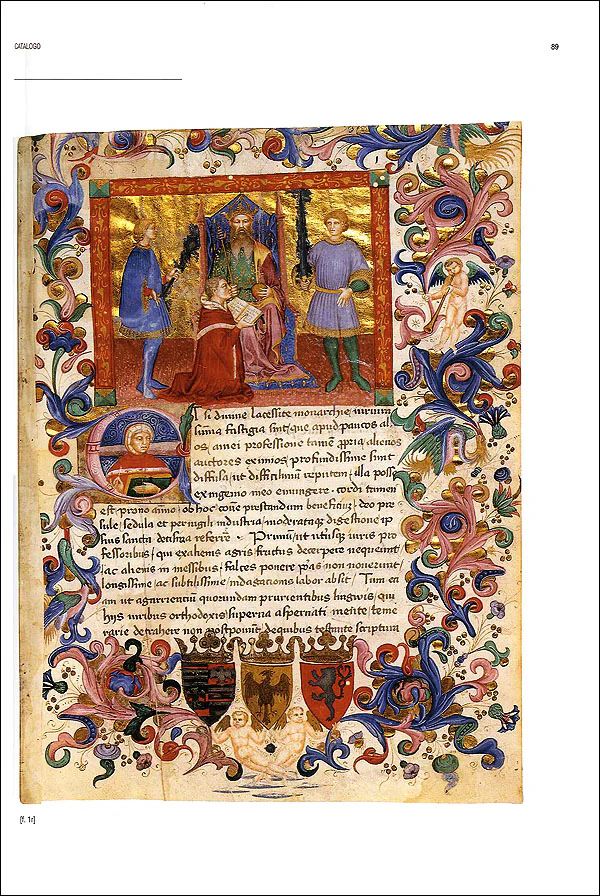 CATALOGO
89
si divine lacessite monarchie
summa fastigia sint, que apud paucos al
os, amei professione tamen alienos
auctores eximios profundissime sint
diffusa, ut difficillimum reputem, illa posse
ex ingenio meo emungere. cordi tamen
est prono animo, ob hoc prestandum beneficium, deo pre
sule, sedula et pervigili industria, moderataque digestione ip
sius sancta referre. Primum, ut utriusque iuris pro
fessoribus, qui ex alienis agris fructus decerpere nequeunt
ac alienis in messibus, falces ponere non noverunt
longissime, ac subtilissime indagationis labor absit. Tum
am ut quorundam prurientibus linguis, qui
hijs viribus orthodoxis, superna aspernati mente, teme
rarie detrahere non postponunt, de quibus testante scriptura
[f. 1r]